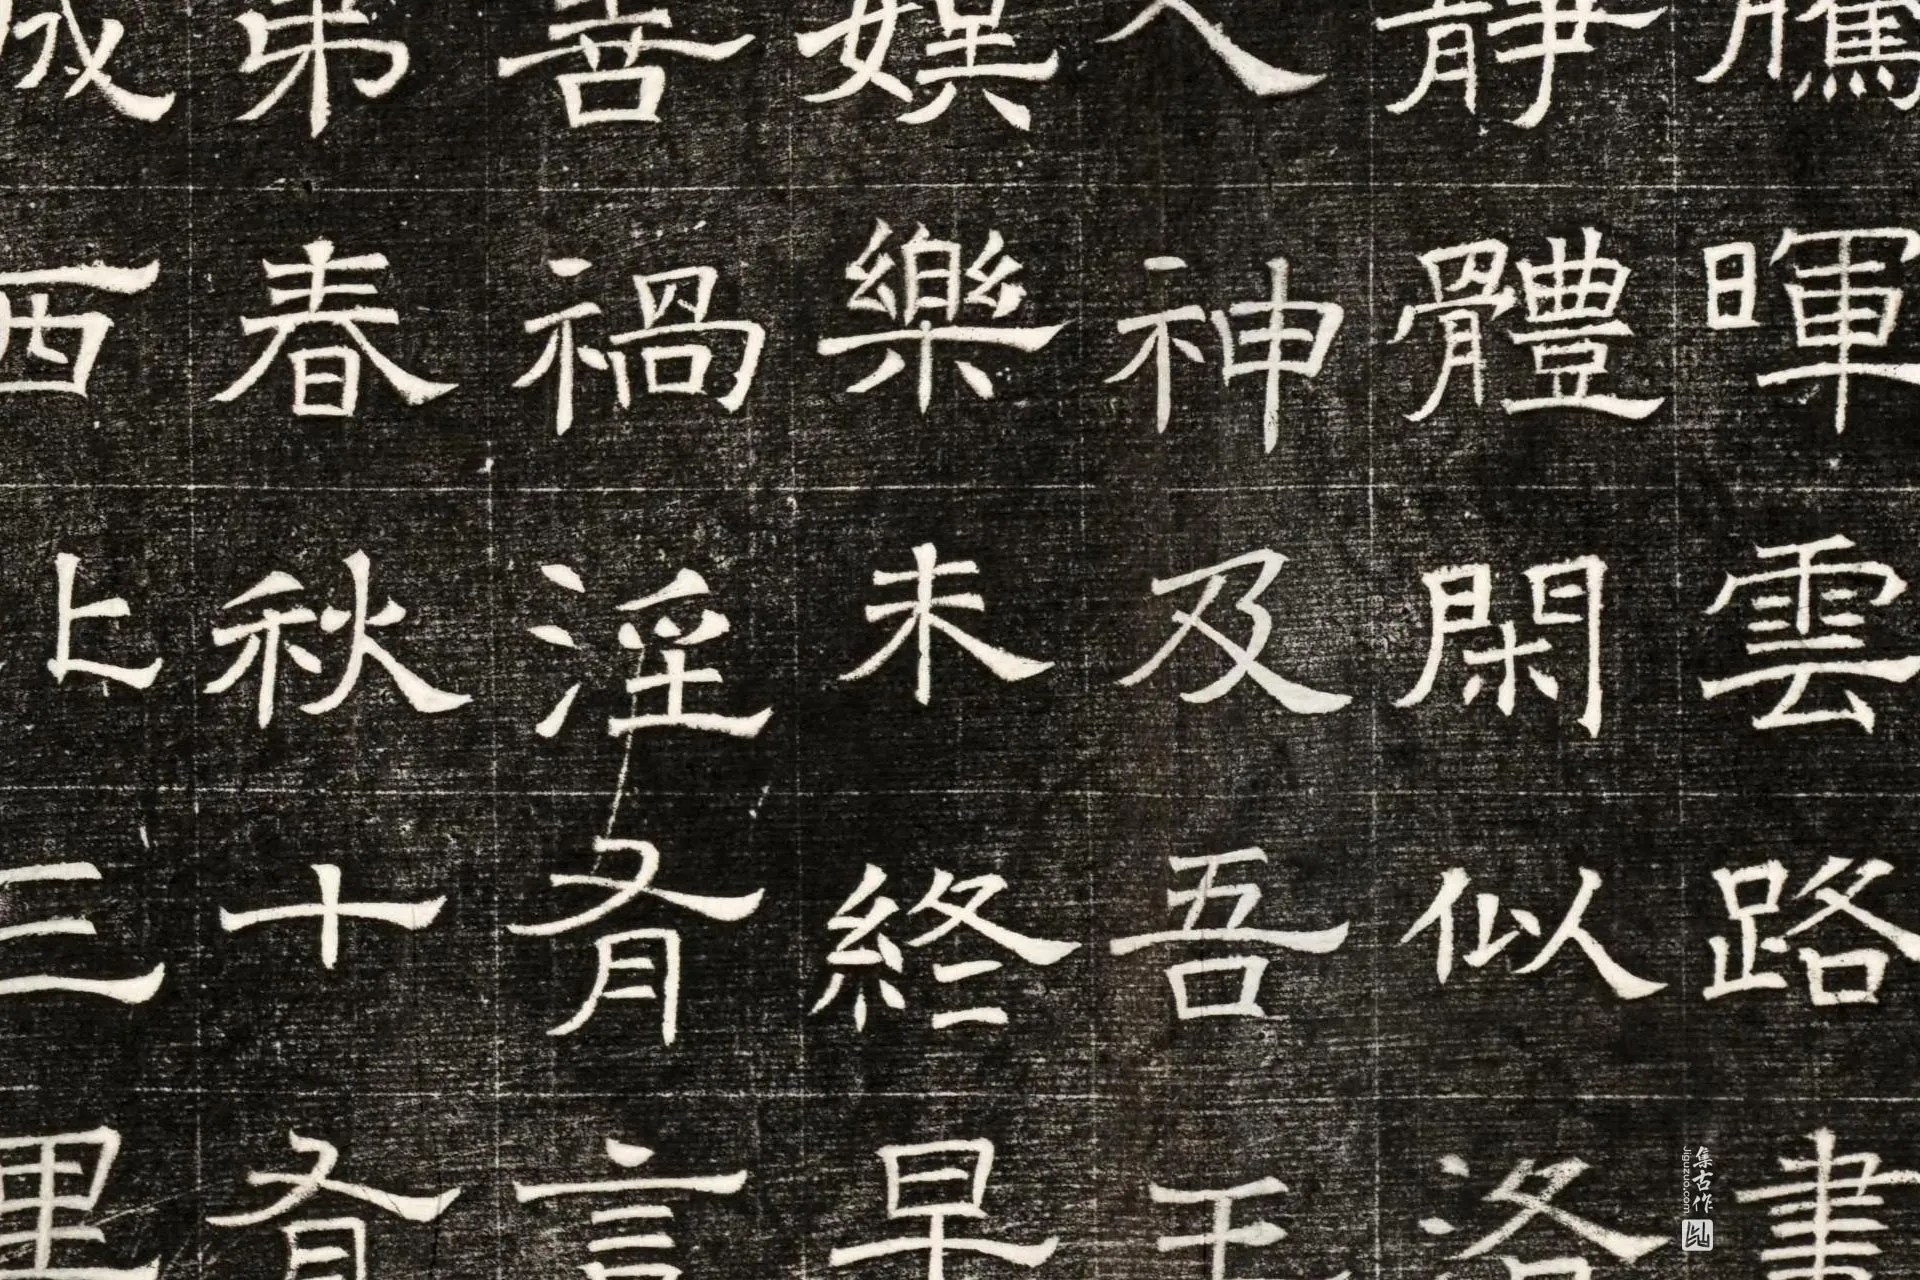 騰暉雲路
靜體閑似洛
入神及吾
娛樂未終早
善禍淫有言
弟春秋十有
西上三里
集古作
jiguzuo.com